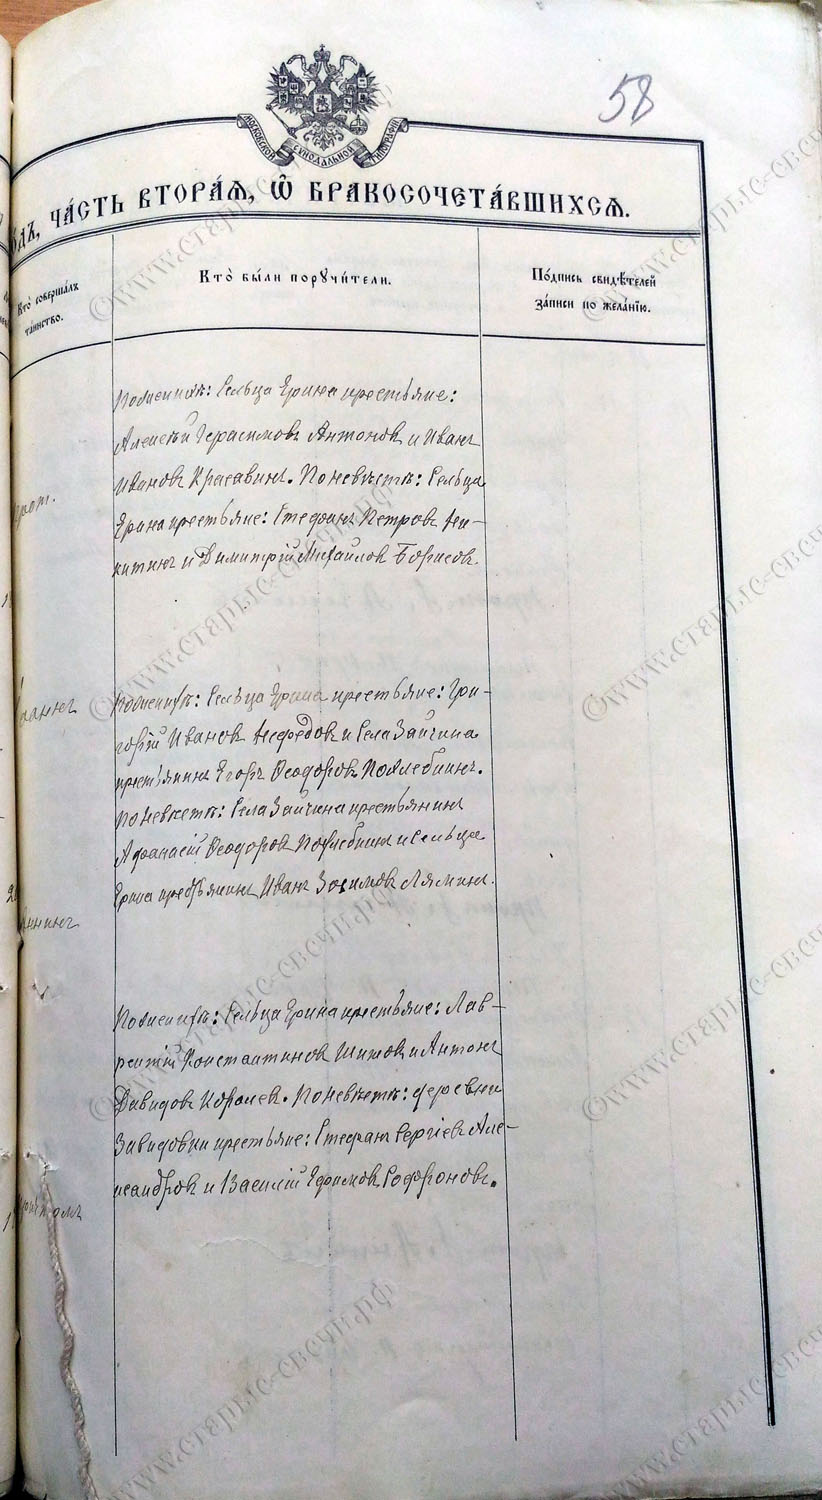 58
МОСКОВСКОЙ СѴНОДАЛЬНОЙ ТИПОГРАФІИ
ЧА́СТЬ ВТОРА́Я, Ѡ҆ БРАКОСОЧЕТА́ВШИХСЯ.
Кто̀ соверша́лъ
та́инство.
Кто̀ бы́ли порꙋчи́тели.
По́дпись свидѣ́телей
за́писи по жела́нїю.
По женихѣ: Сельца Ерина крестьяне:
Алексѣй Герасимовъ Антоновъ и Иванъ
Ивановъ Красавинъ. По невѣстѣ: Сельца
Ерина крестьяне: Стефанъ Петровъ Ни-
китинъ и Димитрій Михайловъ Борисовъ
По женихѣ: Сельца Ерина крестьяне: Гри-
горій Ивановъ Нефедовъ и Села Зайчина
крестьянинъ Егоръ Ѳеодоровъ Похлебкинъ.
По невѣстѣ: Села Зайчина крестьянинъ
Афанасій Ѳеодоровъ Похлебкинъ и Сельца
Ерина крестьянинъ Иванъ Зосимовъ Ляминъ.
По женихѣ: Сельца Ерина крестьяне: Лав-
рентій Константиновъ Шитовъ и Антонъ
Давидовъ Королевъ. По невѣстѣ: деревни
Завидовки крестьяне: Стефанъ Сергіевъ Але-
ксандровъ и Василій Ефимовъ Софроновъ.
©www.старые-свечи.рф